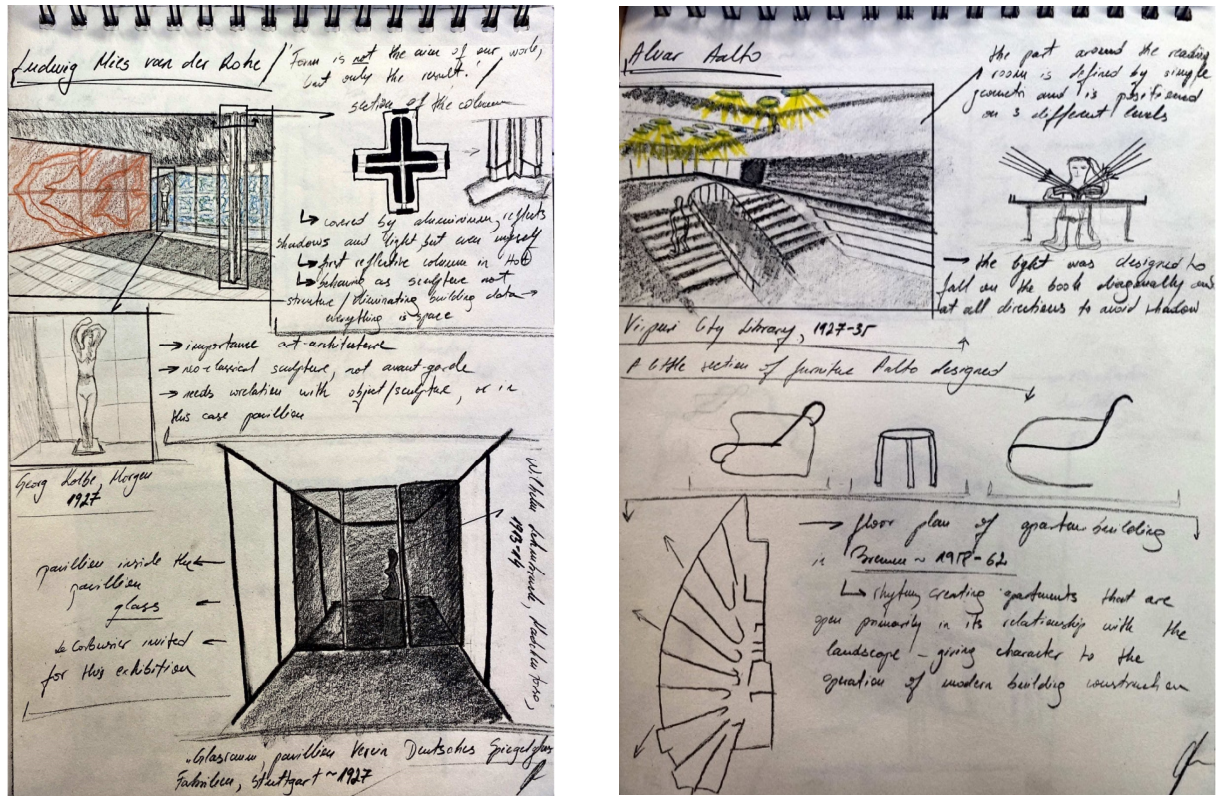 Ludwig Mies van der Rohe / "Form is not the aim of our work,
but only the result."
section of the column
↳ covered by aluminium, reflects
shadows and light but even myself
↳ first reflective column in
↳ behaving as sculpture not
structure / eliminating building data →
everything is space
→ importance art-architecture
→ neo-classical sculpture, not avant-garde
→ needs correlation with object/sculpture, or in
this case pavillion
Georg Kolbe, Morgen
1927
Wilhelm Lehmbruck, Mädchentorso,
1913-14
pavillion inside the ←
pavillion
glass ←
Le Corbusier invited ←
for this exhibition
pavillion Verein Deutsches Spiegelglas
Fabriken, Stuttgart ~ 1927
Alvar Aalto
the part around the reading
room is defined by simple
and is positioned
on 3 different levels
→ the light was designed to
fall on the book diagonally and
at all directions to avoid shadow
Viipuri City Library, 1927-35
A little section of furniture Aalto designed
→ floor plan of building
in Bremen ~ 1958-62
↳ creating apartments that are
open primarily in its relationship with the
landscape – giving character to the
operation of modern building construction